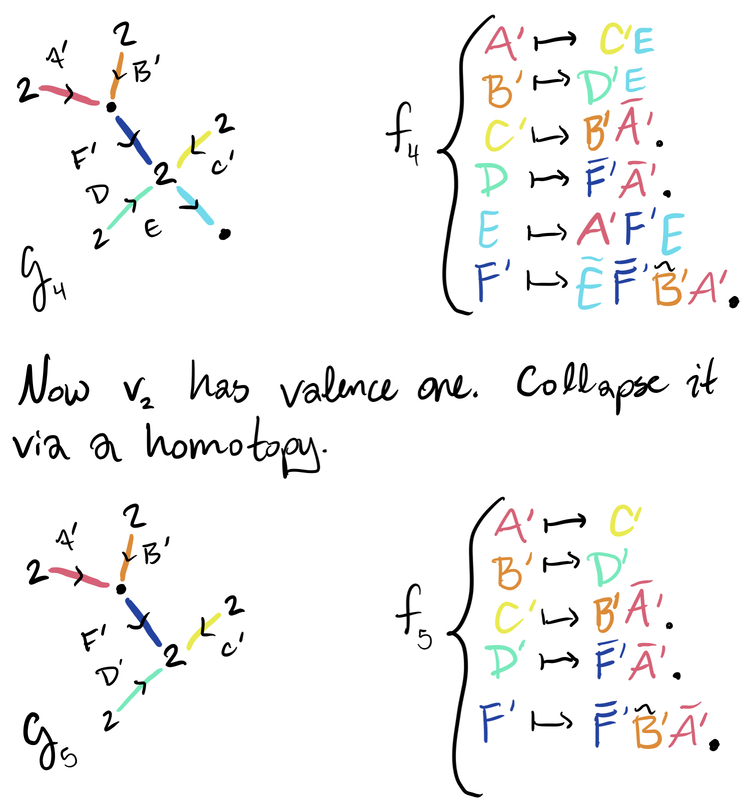 2 A' 2 B'
F' 2 C'
D 2 E
2
G₄
f₄
A' ↦ C'E
B' ↦ D'E
C' ↦ B'Ā'.
D ↦ F̄'Ā'.
E ↦ A'F'E
F' ↦ ĒF̄'B̃'A'.
Now v₂ has valence one. Collapse it
via a homotopy.
2 A' 2 B'
F' 2 C'
D' 2
2
G₅
f₅
A' ↦ C'
B' ↦ D'
C' ↦ B'Ā'.
D' ↦ F̄'Ā'.
F' ↦ F̄'B̃'Ā'.